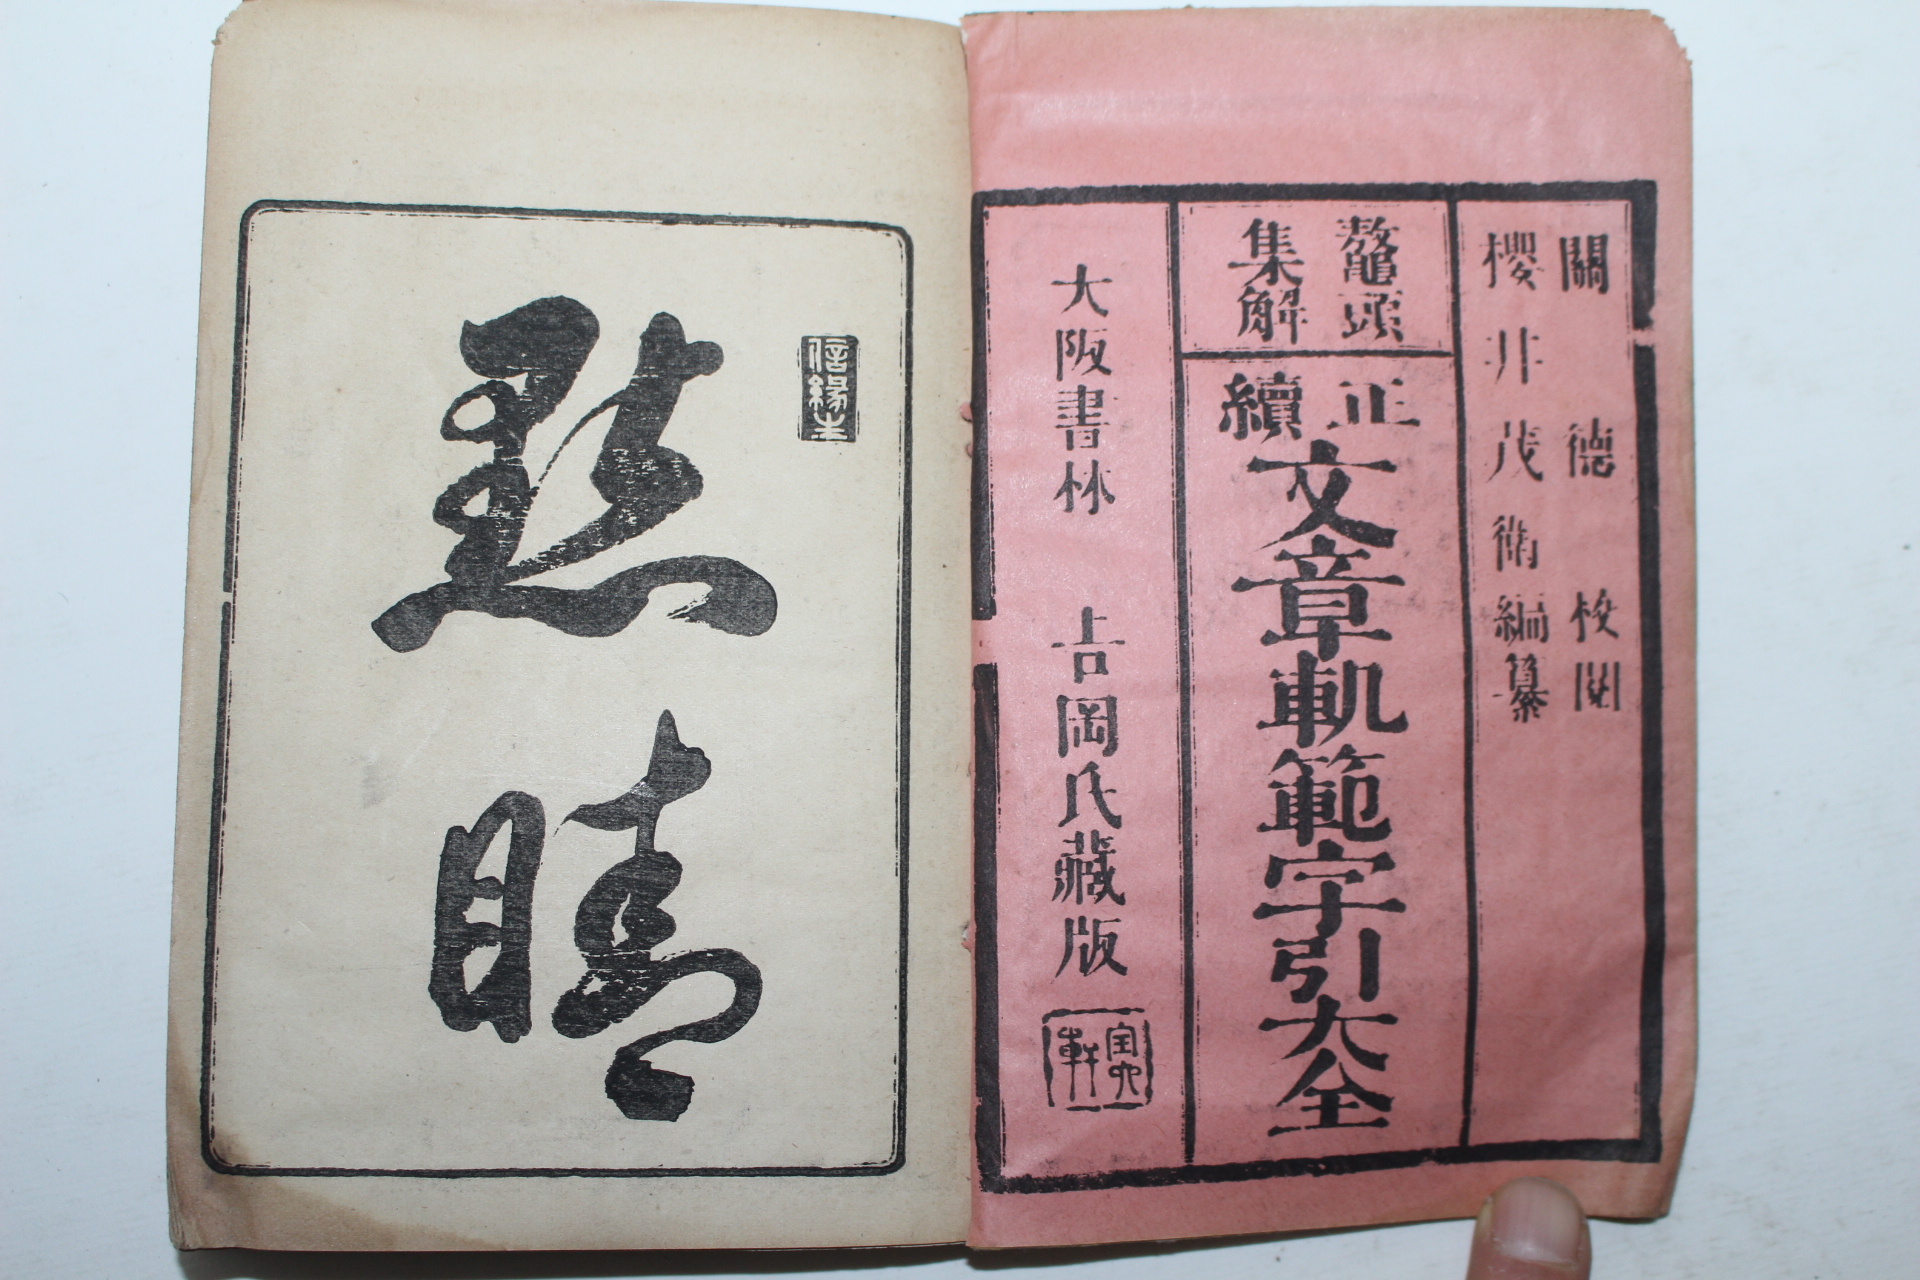 關德校閲
櫻井茂衞編纂
鼇頭
集解
正續
文章軌範字引大全
大阪書林 吉岡氏藏版
寶文軒
信緣生
點睛